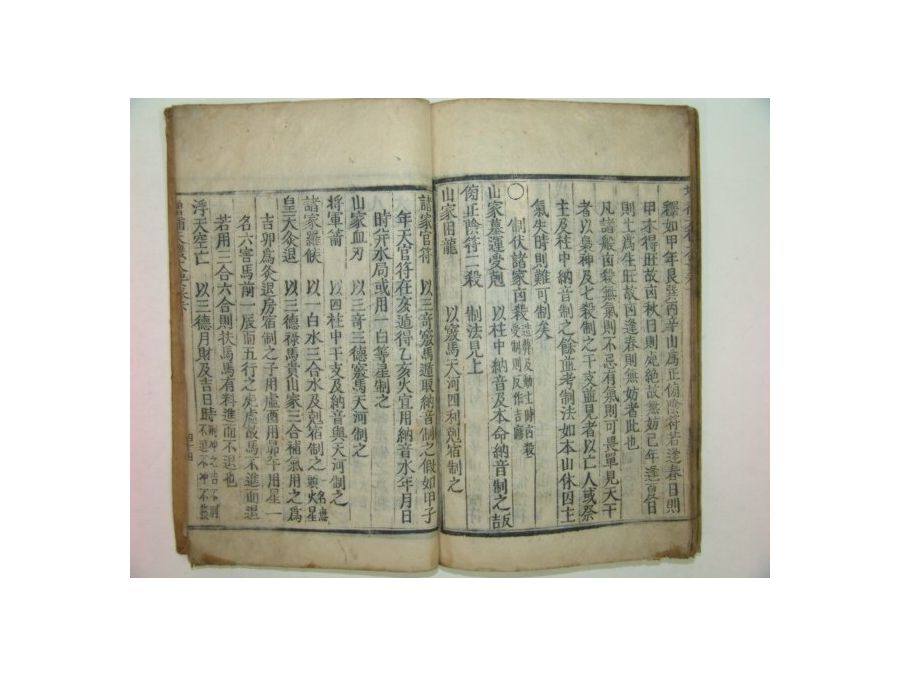 釋如甲年艮巽丙辛山爲正傍陰符若逢春日則
甲木得旺故凶秋日則死絶故無妨己年逢夏日
則土爲生旺故凶逢春則無妨者此也
凡諸般凶殺無氣則不忌有氣則可畏單見天干
者以梟神及七殺制之干支並見者以亡人或祭
主及柱中納音制之餘並考制法如本山休囚主
氣失時則難可制矣
○ 制伏諸家凶殺 造葬及動土時凶殺受制則反作吉
山家墓運受剋 以柱中納音及本命納音制之吉
傍正陰符二殺 制法見上
山家困龍 以竅馬天河四利剋宿制之
諸家官符 以三奇竅馬遁取納音制之假如甲子
年天官符在亥遁得乙亥火宜用納音水年月日
時幷水局或用一白等星制之
山家血刃 以三奇三德竅馬天河制之
將軍箭 以四柱中干支及納音與天河制之
諸家羅候 以一白水三合水及剋宿制之 一名火星
皇天灸退 以三德祿馬貴山家三合補氣用之爲
吉卯爲灸退房宿制之子用虛酉用昴午用星一
名六害馬前一辰而五行之死處故馬不進而退
若用三合六合則扶馬馬有料進而不退也
浮天空亡 以三德月財及吉日時
四十四